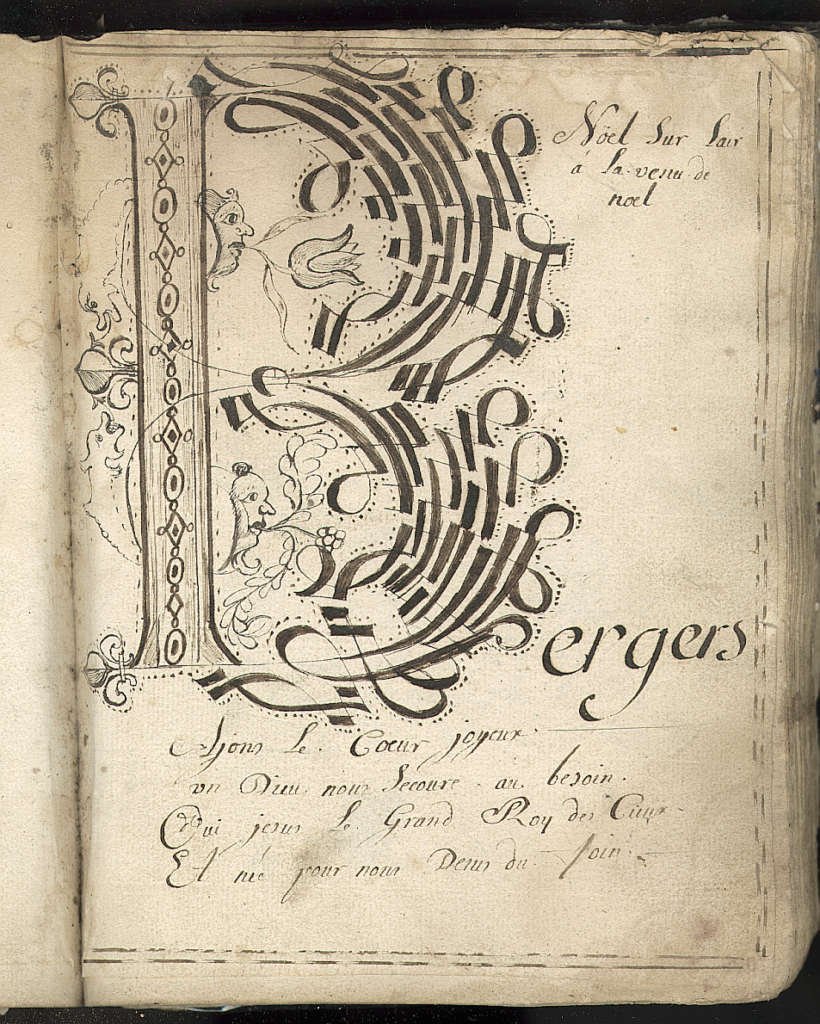 Noel sur lair
à la venu de
noel
Bergers
Ajons le Coeur joyeux
un Dieu nous secoure au besoin.
Qui jesus le Grand Roy des Cieux
Et né pour nous Dens du foin.